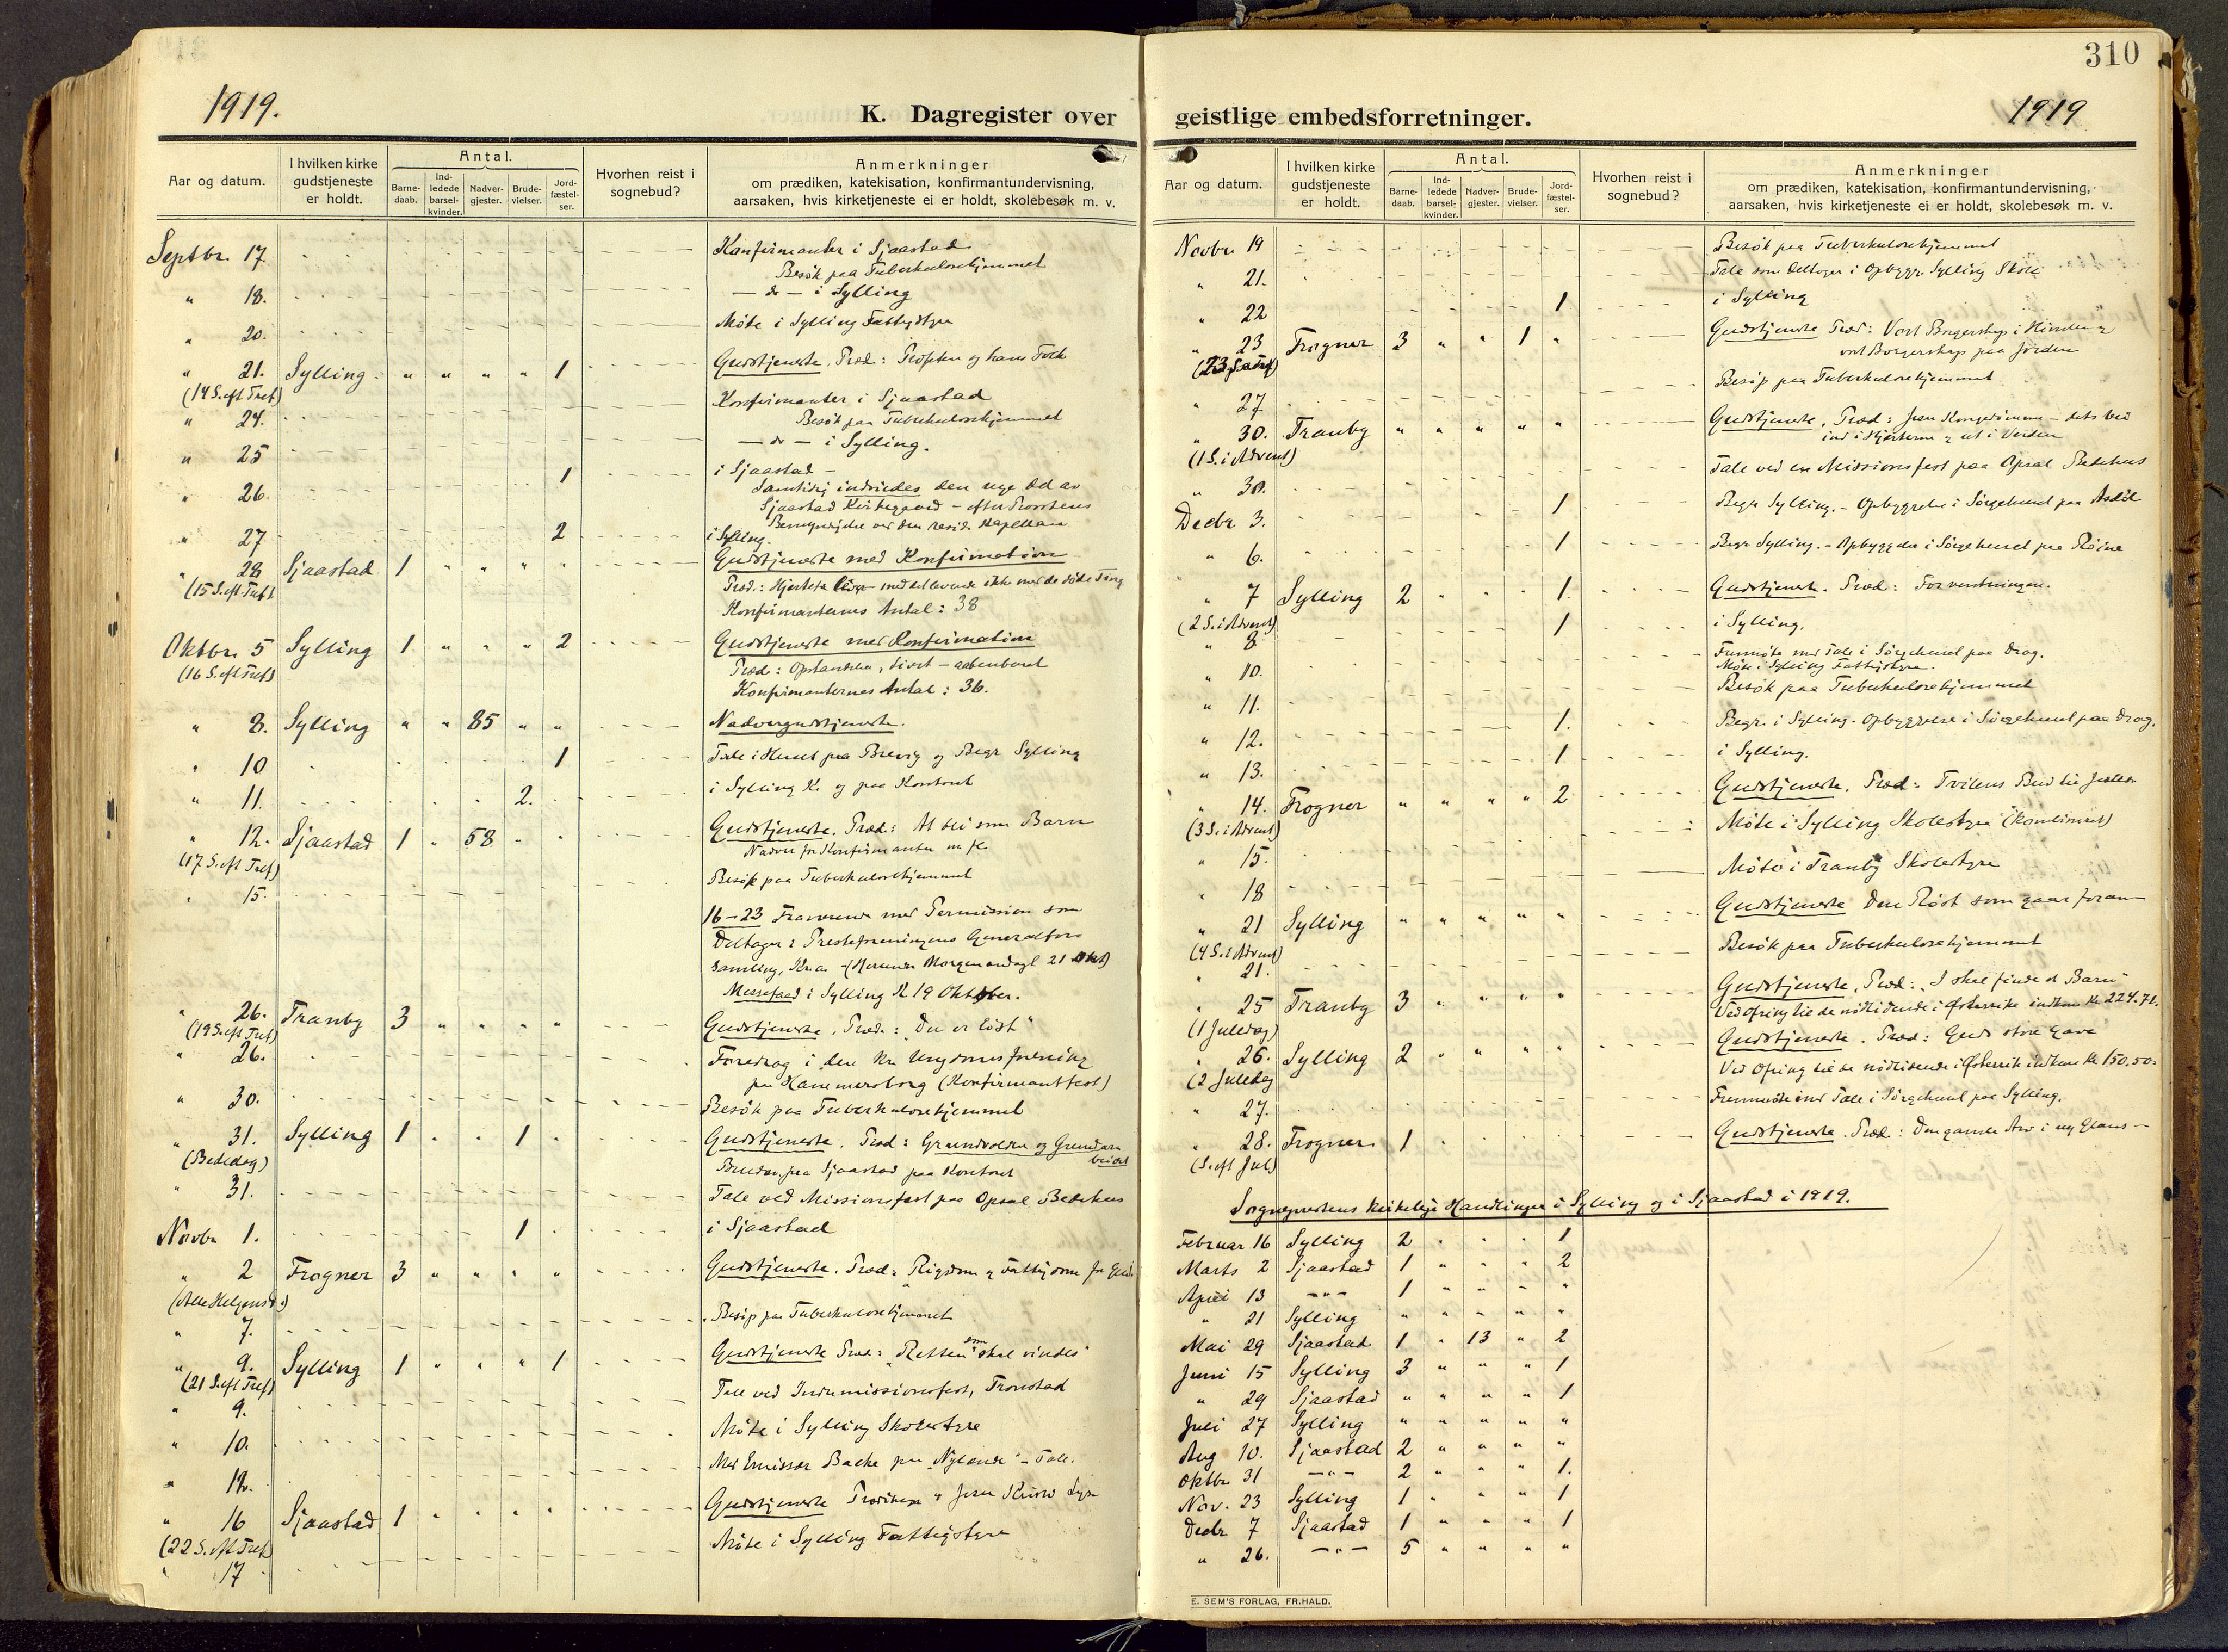 310
1919.
K. Dagregister over
Aar og datum.
I hvilken kirke gudstjeneste er holdt.
Antal.
Barne-daab.
Ind-ledede barsel-kvinder.
Nadver-gjester.
Brude-vielser.
Jord-fæstel-ser.
Hvorhen reist i sognebud?
Anmerkninger
om prædiken, katekisation, konfirmantundervisning,
aarsaken, hvis kirketjeneste ei er holdt, skolebesøk m. v.
Septbr. 17 Konfirmanter i Sjaastad
Besøk paa Tuberkulosehjemmet
" 18. — do — i Sylling
" 20. Møte i Sylling Fattigstyre
" 21. Sylling " " " " 1 Gudstjeneste, Præd: Profeten og hans Folk
(14 S. eft Tref)
" 24. Konfirmanter i Sjaastad
Besøk paa Tuberkulosehjemmet
" 25 — do — i Sylling.
" 26 1 i Sjaastad —
Samtidig indviedes den nye Del av
Sjaastad Kirkegaard – efter Provstens
Bemyndigelse ved den resid. Kapellan
" 27 2 i Sylling.
" 28 Sjaastad 1 " " " " Gudstjeneste med Konfirmation
(15 S. eft Tref) Præd.:
Konfirmanternes Antal: 38
Oktbr. 5 Sylling 1 " " " 2 Gudstjeneste med Konfirmation
(16 S. eft Tref) Præd: Opstandelse,
Konfirmanternes Antal: 36.
" 8. Sylling " " 85 " " Nadvergudstjeneste.
" 10 1 Tale i Huset paa Brevig og Begr Sylling
" 11. 2. i Sylling K. og paa Kontoret
" 12. Sjaastad 1 " 58 " " Gudstjeneste. Præd: At bli som Barn
(17 S. eft Tref) Nadver for Konfirmanter m fl.
" 15. Besøk paa Tuberkulosehjemmet
16 – 23 Fraværende med Permission som
Deltager i Presteforeningens Generalfor
samling, Kr.a
Messefald i Sylling d 19 Oktober.
" 26. Tranby 3 " " " " Gudstjeneste, Præd.: "Du er löst"
(19 S. eft Tref)
" 26. Foredrag i den Kr. Ungdomsforening
paa Hammersborg (Konfirmantfest)
" 30. Besøk paa Tuberkulosehjemmet
" 31. Sylling 1 " " 1 " Gudstjeneste. Præd: Grundvolden og Grundar
beidet
(Bededag) Brudev. paa Sjaastad paa Kontoret
" 31. Tale ved Missionsfest paa Opsal Bedehus
Novbr 1. 1 i Sjaastad
" 2 Frogner 3 " " " " Gudstjeneste. Præd: Rigdom & Fattigdom for Gud
(Alle Helgensd.)
" 7. Besøk paa Tuberkulosehjemmet
" 9. Sylling 1 " " " 1 Gudstjeneste Præd: "Retten" som skal vindes
(21 S. eft Tref)
" 9. Tale ved Indremissionsfest, Tronstad
" 10. Møte i Sylling Skolestyre
" 12. Med Emissær Backe paa "Nylænde" – Tale.
" 16 Sjaastad 1 " " " " Gudstjeneste Prædiken
(22 S. eft Tref)
" 17 Møte i Sylling Fattigstyre
geistlige embedsforretninger.
1919
Aar og datum.
I hvilken kirke gudstjeneste er holdt.
Antal.
Barne-daab.
Ind-ledede barsel-kvinder.
Nadver-gjester.
Brude-vielser.
Jord-fæstel-ser.
Hvorhen reist i sognebud?
Anmerkninger
om prædiken, katekisation, konfirmantundervisning,
aarsaken, hvis kirketjeneste ei er holdt, skolebesøk m. v.
Novbr 19 Besøk paa Tuberkulosehjemmet
" 21. Tale som Deltager i Opbygg. Sylling Skole
" 22 1 i Sylling
" 23 Frogner 3 " " 1 " Gudstjeneste Præd: Vort Borgerskap i Himlen &
vort Borgerskap paa Jorden
" 27 Besøk paa Tuberkulosehjemmet
" 30. Tranby " " " " " Gudstjeneste, Præd: Jesu Kongedømme – dets Vei
(1 S. i Advent) ind i Hjerterne & ut i Verden
" 30. Tale ved en Missionsfest paa Opsal Bedehus
Decbr 3. 1 Begr Sylling. – Opbyggelse i Sørgehuset paa
" 6. 1 Begr Sylling. – Opbyggelse i Sørgehuset paa Røine
" 7 Sylling 2 " " " 1. Gudstjeneste. Præd: Forventningen.
(2 S. i Advent)
" 8 1 i Sylling.
" 10. Fremmøte med Tale i Sørgehuset paa Drag.
Møte i Sylling Fattigstyre.
" 11. Besøk paa Tuberkulosehjemmet
" 12. 1. Begr. i Sylling. Opbyggelse i Sørgehuset paa Drag.
" 13. 1 i Sylling.
" 14. Frogner " " " " 2 Gudstjeneste, Præd: Tvilens Bud til Jesus
(3 S. i Advent)
" 15. Møte i Sylling Skolestyre (Kombinert)
" 18 Møte i Tranby Skolestyre
" 21 Sylling " " " " " Gudstjeneste Den Røst som gaar foran
(4 S. i Advent)
" 21. Besøk paa Tuberkulosehjemmet
" 25 Tranby 3 " " " " Gudstjeneste, Præd: "I skal finde et Barn"
(1 Juledag) Ved Ofring til de nødlidende i Østerrike indkom Kr 224.71.
" 26. Sylling 2 " " " " Gudstjeneste. Præd: Guds store Gave
(2 Juledag Ved Ofring til de nødlidende i Østerrik indkom Kr 150.50.
" 27. Fremmøte med Tale i Sørgehuset paa Sylling.
" 28. Frogner 1 Gudstjeneste. Præd.: Den gamle Arv i ny Glans –
(S. eft Jul)
Sogneprestens kirkelige Handlinger i Sylling og i Sjaastad i 1919.
Februar 16 Sylling 2 " " " 1
Marts 2 Sjaastad 1 " " " 2
April 13 – " – 1 " " " "
" 21 Sylling " " " " "
Mai 29 Sjaastad 1 " 13 " 2
Juni 15 Sylling 3 " " " 1
" 29 Sjaastad " " " " 1
Juli 27 Sylling " " " " "
Aug 10. Sjaastad 2 " " " "
Oktbr 31 – " – 2 " " " 1.
Nov. 23 Sylling 1 " " " 1
Decbr 7 Sjaastad 1 " " " 1
" 26. – " – 5 " " " "
E. SEM'S FORLAG, FR.HALD.